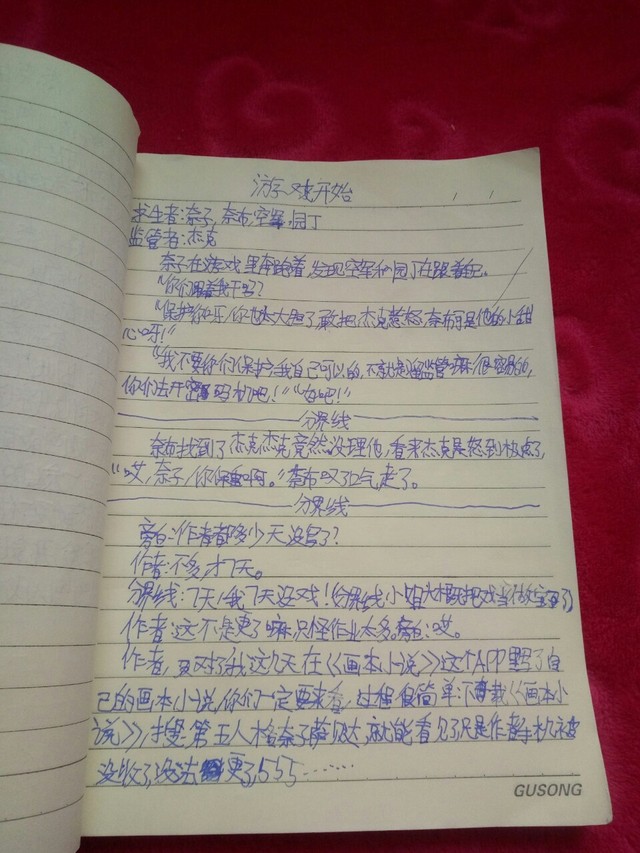 游戏开始
求生者:奈子,奈布,空军,园丁
监管者:杰克
奈子在游戏里奔跑着,发现空军和园丁在跟着自己。
“你们跟着我干吗?
“保护你呀,你太大胆了,敢把杰克惹怒,奈布可是他的小甜
心呀!”
“我不要你们保护,我自己可以的,不就是遛监管嘛,很容易的,
你们去开密码机吧!”“好吧!”
分界线
奈布找到了杰克,杰克竟然没理他,看来杰克是怒到极点了,
“哎,奈子,你保重啊。”奈布叹了口气走了。
分界线
旁白:作者都多少天没写了?
作者:不多,才7天。
分界线:7天!我7天没戏!(分界线小姐大概把戏当做宝了)
作者:这不是更了嘛,只怪作业太多。旁白:哎。
作者,又对了我这几天在《画本小说》这个APP里写了自
己的画本小说,你们一定要来看,过程很简单:下载《画本小
说》,搜:第五人格奈子萨贝达,就能看见了,只是作者手机被
没收了,没法更了,555……
GUSONG